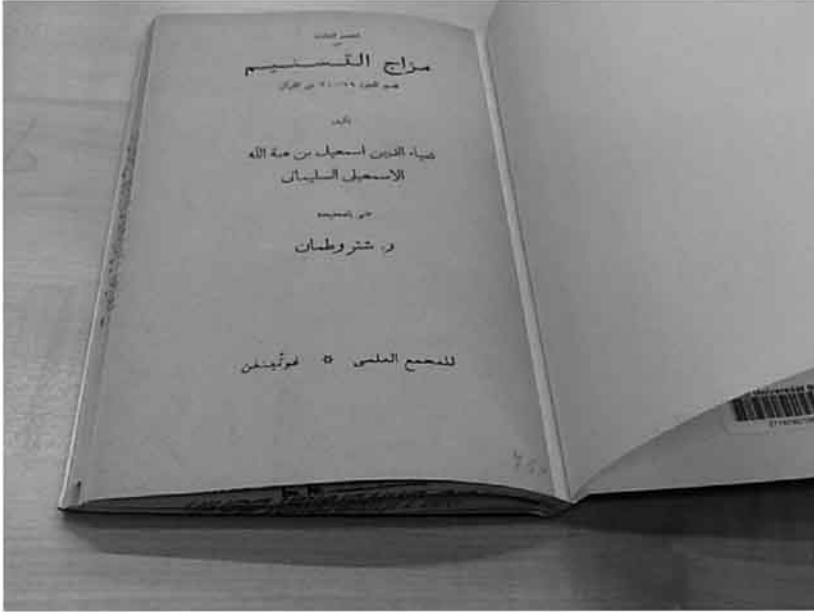 مزاج التسنيم
من القرآن
تأليف
ضياء الدين اسمعيل بن هبة الله
الاسمعيلى السليمانى
عنى بتصحيحه
ر. شتروطمان
للمجمع العلمى غوتينغن